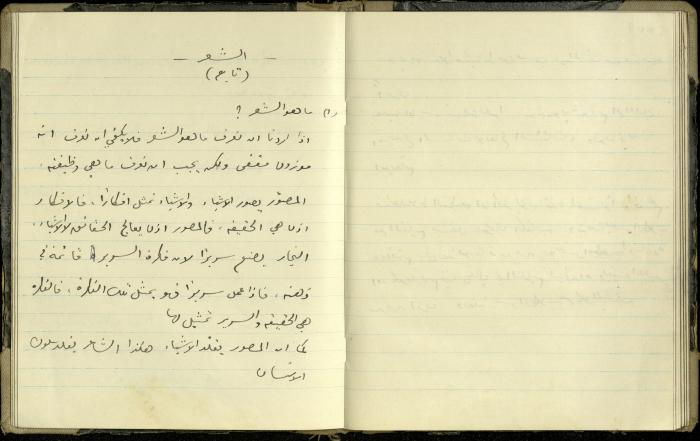 - الشعر -
(تابع)
ما هو الشعر ؟
اذا اردنا ان نعرف ما هو الشعر فلا يكفي ان نعرف انه
موزون مقفى ولكن يجب ان نعرف ما هي وظيفته .
المصور يصور الاشياء والاشياء تمثل افكارًا ، فالافكار
اذن هي الحقيقة ، فالمصور اذن يعالج الحقائق لا الاشياء .
النجار يصنع سريرًا لان فكرة السرير قائمة في
ذهنه ، فاذا عمل سريرًا فهو يمثل تلك الفكرة ، فالفكرة
هي الحقيقة والسرير تمثيل لها
كما ان المصور يقلد الاشياء هكذا الشاعر يقلد سلوك
الانسان